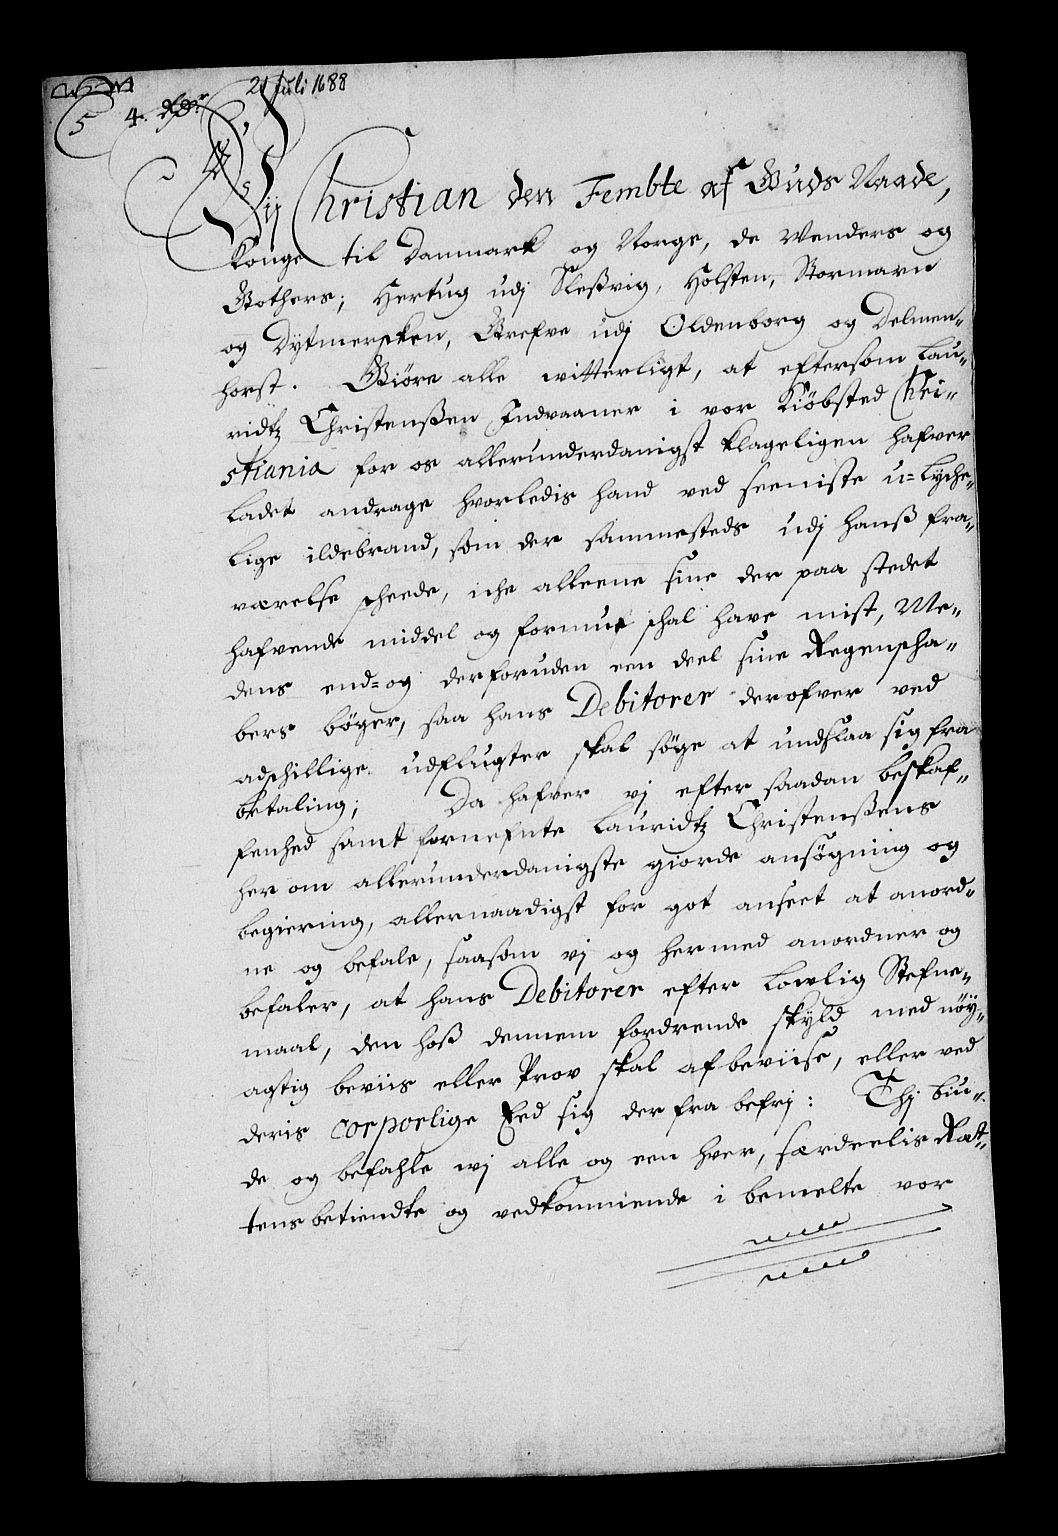 21 Juli 1688
5 4. Rdr
Vij Christian den Fembte af Guds Naade,
Konge til Danmark og Norge, de Wenders og
Gothers; Hertug udj Sleßvig, Holsten, Stormarn
og Dytmersken, Grefve udj Oldenborg og Delmen-
horst. Giöre alle witterligt, at eftersom Lau-
ridtz Christenßen Indvaaner i vor Kiöbsted Chri-
stiania for os allerunderdanigst klageligen hafver
Ladet andrage hvorledis hand ved seeniste u=Lyche-
lige ildebrand, som der sammesteds udj hanß fra-
værelse scheede, iche alleene sine der paa stedet
hafvende middel og formue schal have mist, Me-
dens end=og derforuden een deel sine Regenscha-
bers böger, saa hans Debitorer derofver ved
adschillige udflugter skal söge at undslaa sig fra
betaling; Da hafver vj efter saadan beskaf-
fenhed samt fornefnte Lauridtz Christenßens
her om allerunderdanigste giorde ansögning og
begiering, allernaadigst for got anseet at anord-
ne og befale, saasom vj og hermed anordner og
befaler, at hans Debitorer efter Lowlig Stefne-
maal, den hoß dennem fordrende skyld med nöy-
agtig beviis eller Prov skal afbeviise, eller ved
deris corporlige Eed sig der fra befrj: Thj biu-
de og befahle wj alle og een hver, særdeelis Ræt-
tens betiendte og vedkommende i bemelte vor